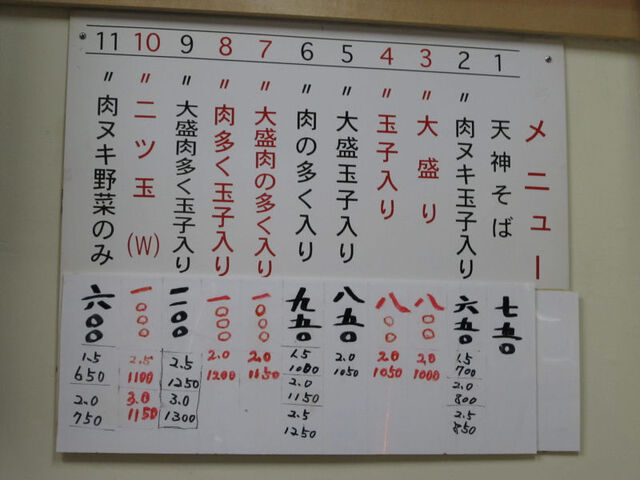 メニュー
1 天神そば
七五〇
2 〃 肉ヌキ玉子入り
六五〇
1.5
700
2.0
800
2.5
850
3 〃 大盛り
八〇〇
2.0
1000
4 〃 玉子入り
八〇〇
2.0
1050
5 〃 大盛玉子入り
八五〇
2.0
1050
6 〃 肉の多く入り
九五〇
1.5
1000
2.0
1150
2.5
1250
7 〃 大盛肉の多く入り
一〇〇〇
2.0
1150
8 〃 肉多く玉子入り
一〇〇〇
2.0
1200
9 〃 大盛肉多く玉子入り
一一〇〇
2.5
1250
3.0
1300
10 〃 二ツ玉 (W)
一〇〇〇
2.5
1100
3.0
1150
11 〃 肉ヌキ野菜のみ
六〇〇
1.5
650
2.0
750